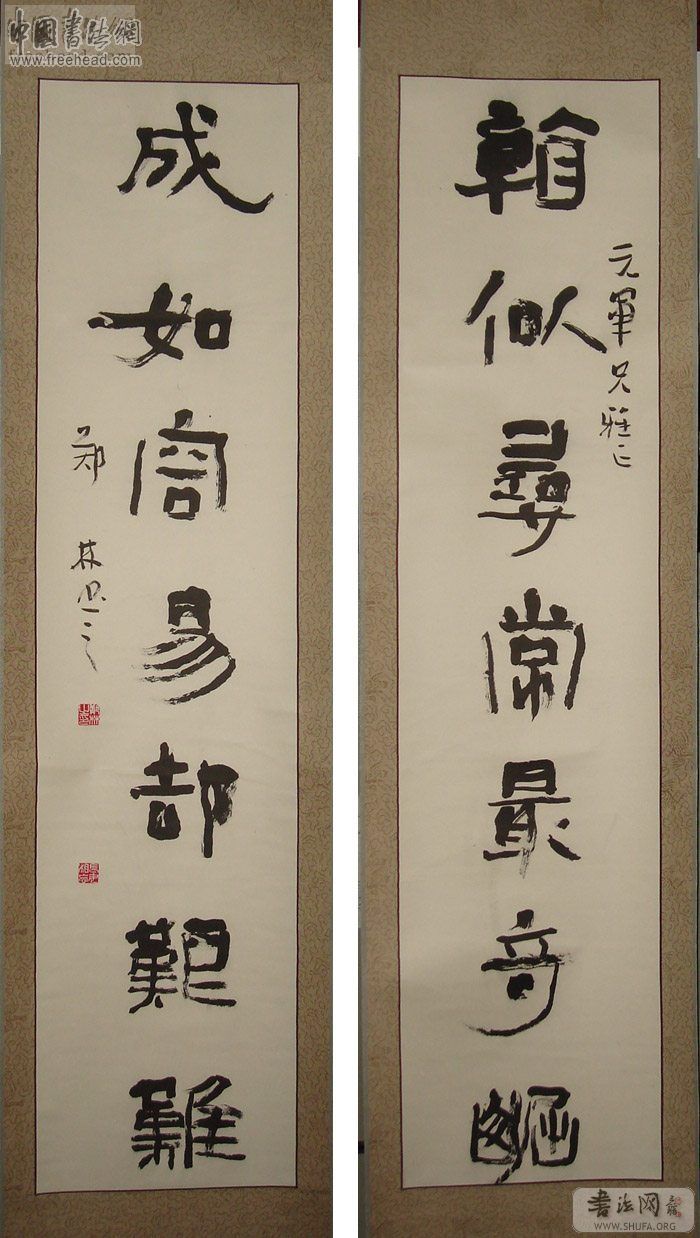 看似尋常最奇崛
元軍兄雅正
成如容易却艱難
中國書法網
www.freehead.com
书法网
WWW.SHUFA.ORG